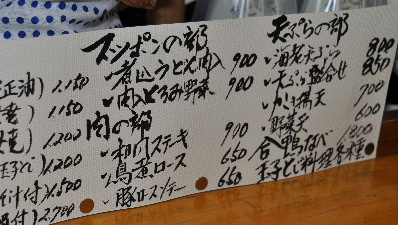 天ぷらの部
・海老天ぷら 800
・天ぷら盛合せ 850
・かき揚天 700
・野菜天 600
合鴨なべ 1800
玉子とじ料理各種
スッポンの部
・煮込うどん肉入 900
・肉入とろみ野菜 900
肉の部
・和川ステキ 900
・鳥煮ロース 650
・豚ロースソテー 650
正油) 1,150
1,150
1,200
玉子とじ) 1,200
付) 1,500
付) 2,700